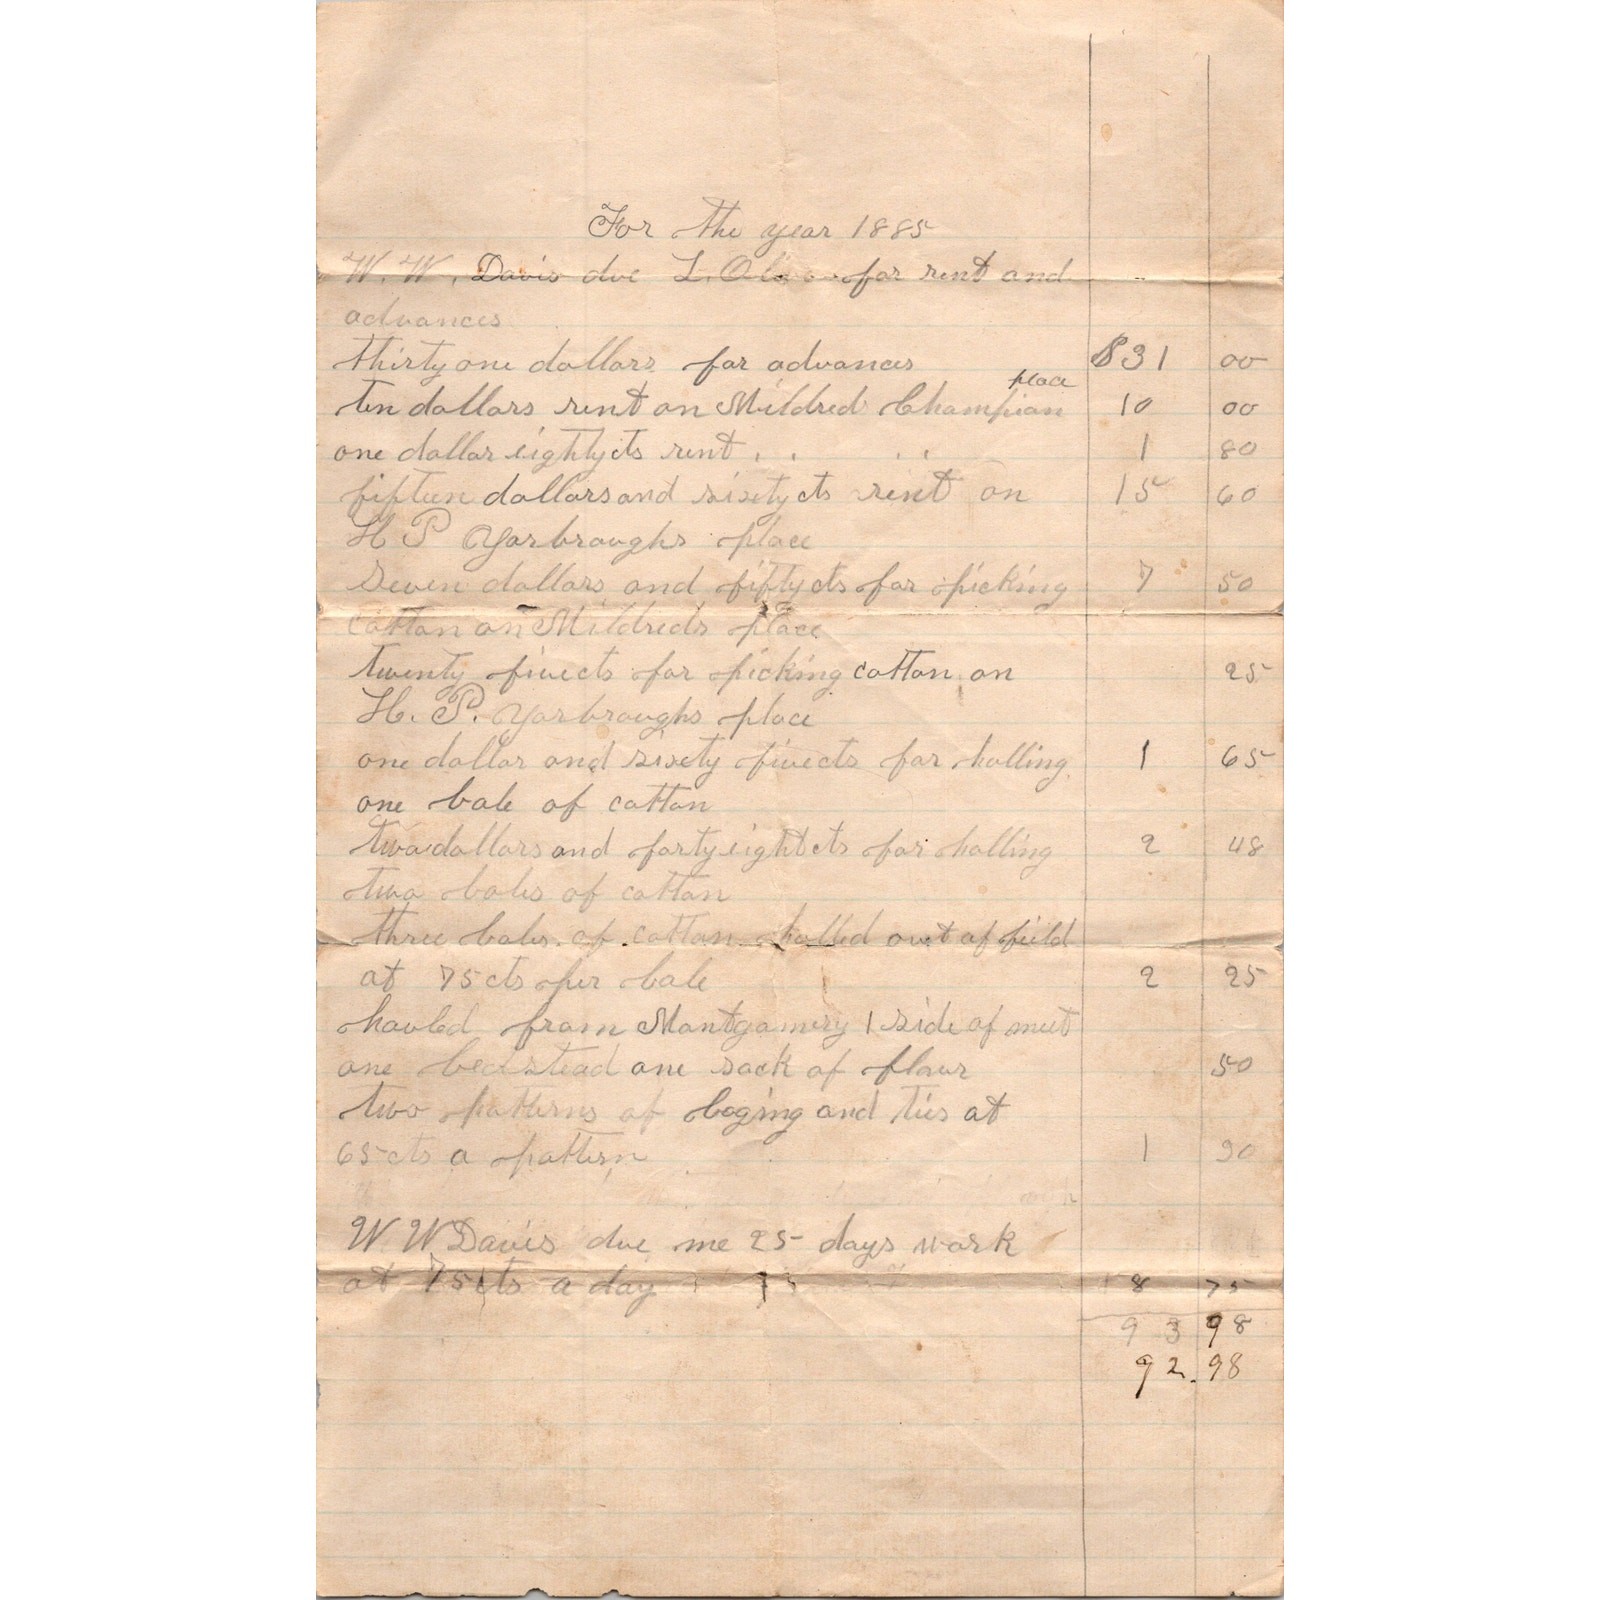 For the year 1885
W. W. Davis due L. Oliver for rent and
advances
thirty one dollars for advances $31 00
place
ten dollars rent on Mildred Champian 10 00
one dollar eighty cts rent " " 1 80
fifteen dollars and sixty cts rent on 15 60
H P Yarbroughs place
Seven dollars and fifty cts for picking 7 50
cotton on Mildreds place
twenty five cts for picking cotton on 25
H. P. Yarbroughs place
one dollar and sixety five cts for halling 1 65
one bale of cotton
two dollars and forty eight cts for halling 2 48
two bales of cotton
three bales of cotton halled out of field
at 75 cts per bale 2 25
hauled from Montgomery 1 side of meet
one bedstead one sack of flour 50
two patterns of baging and ties at
65 cts a pattern 1 30
W W Davis due me 25 days work
at 75 cts a day 8 75
93 98
92.98